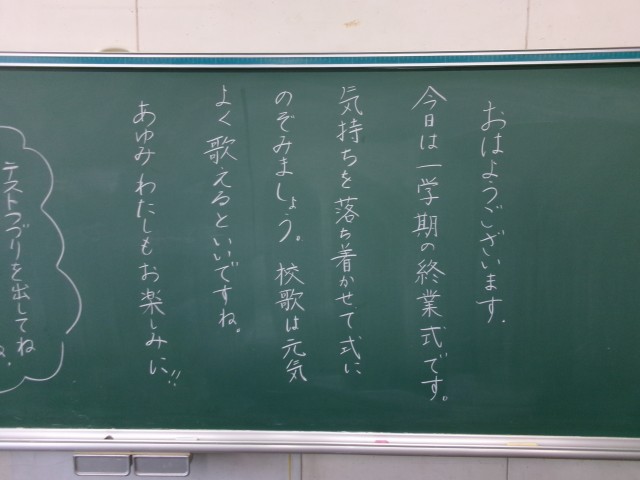 おはようございます.
今日は一学期の終業式です。
気持ちを落ち着かせて式に
のぞみましょう。校歌は元気
よく歌えるといいですね。
あゆみわたしもお楽しみに!!
テストつづりを出してね